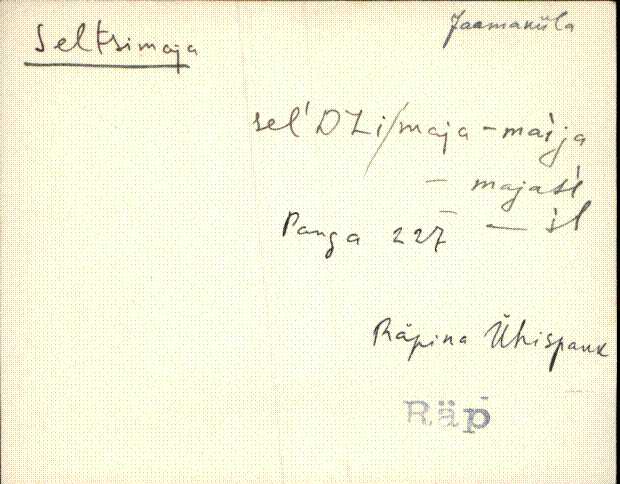 Seltsimaja
Jaamaküla
sel'DZi/maja - majja
- majast
Panga 227 - st
Räpina Ühispank
Räp